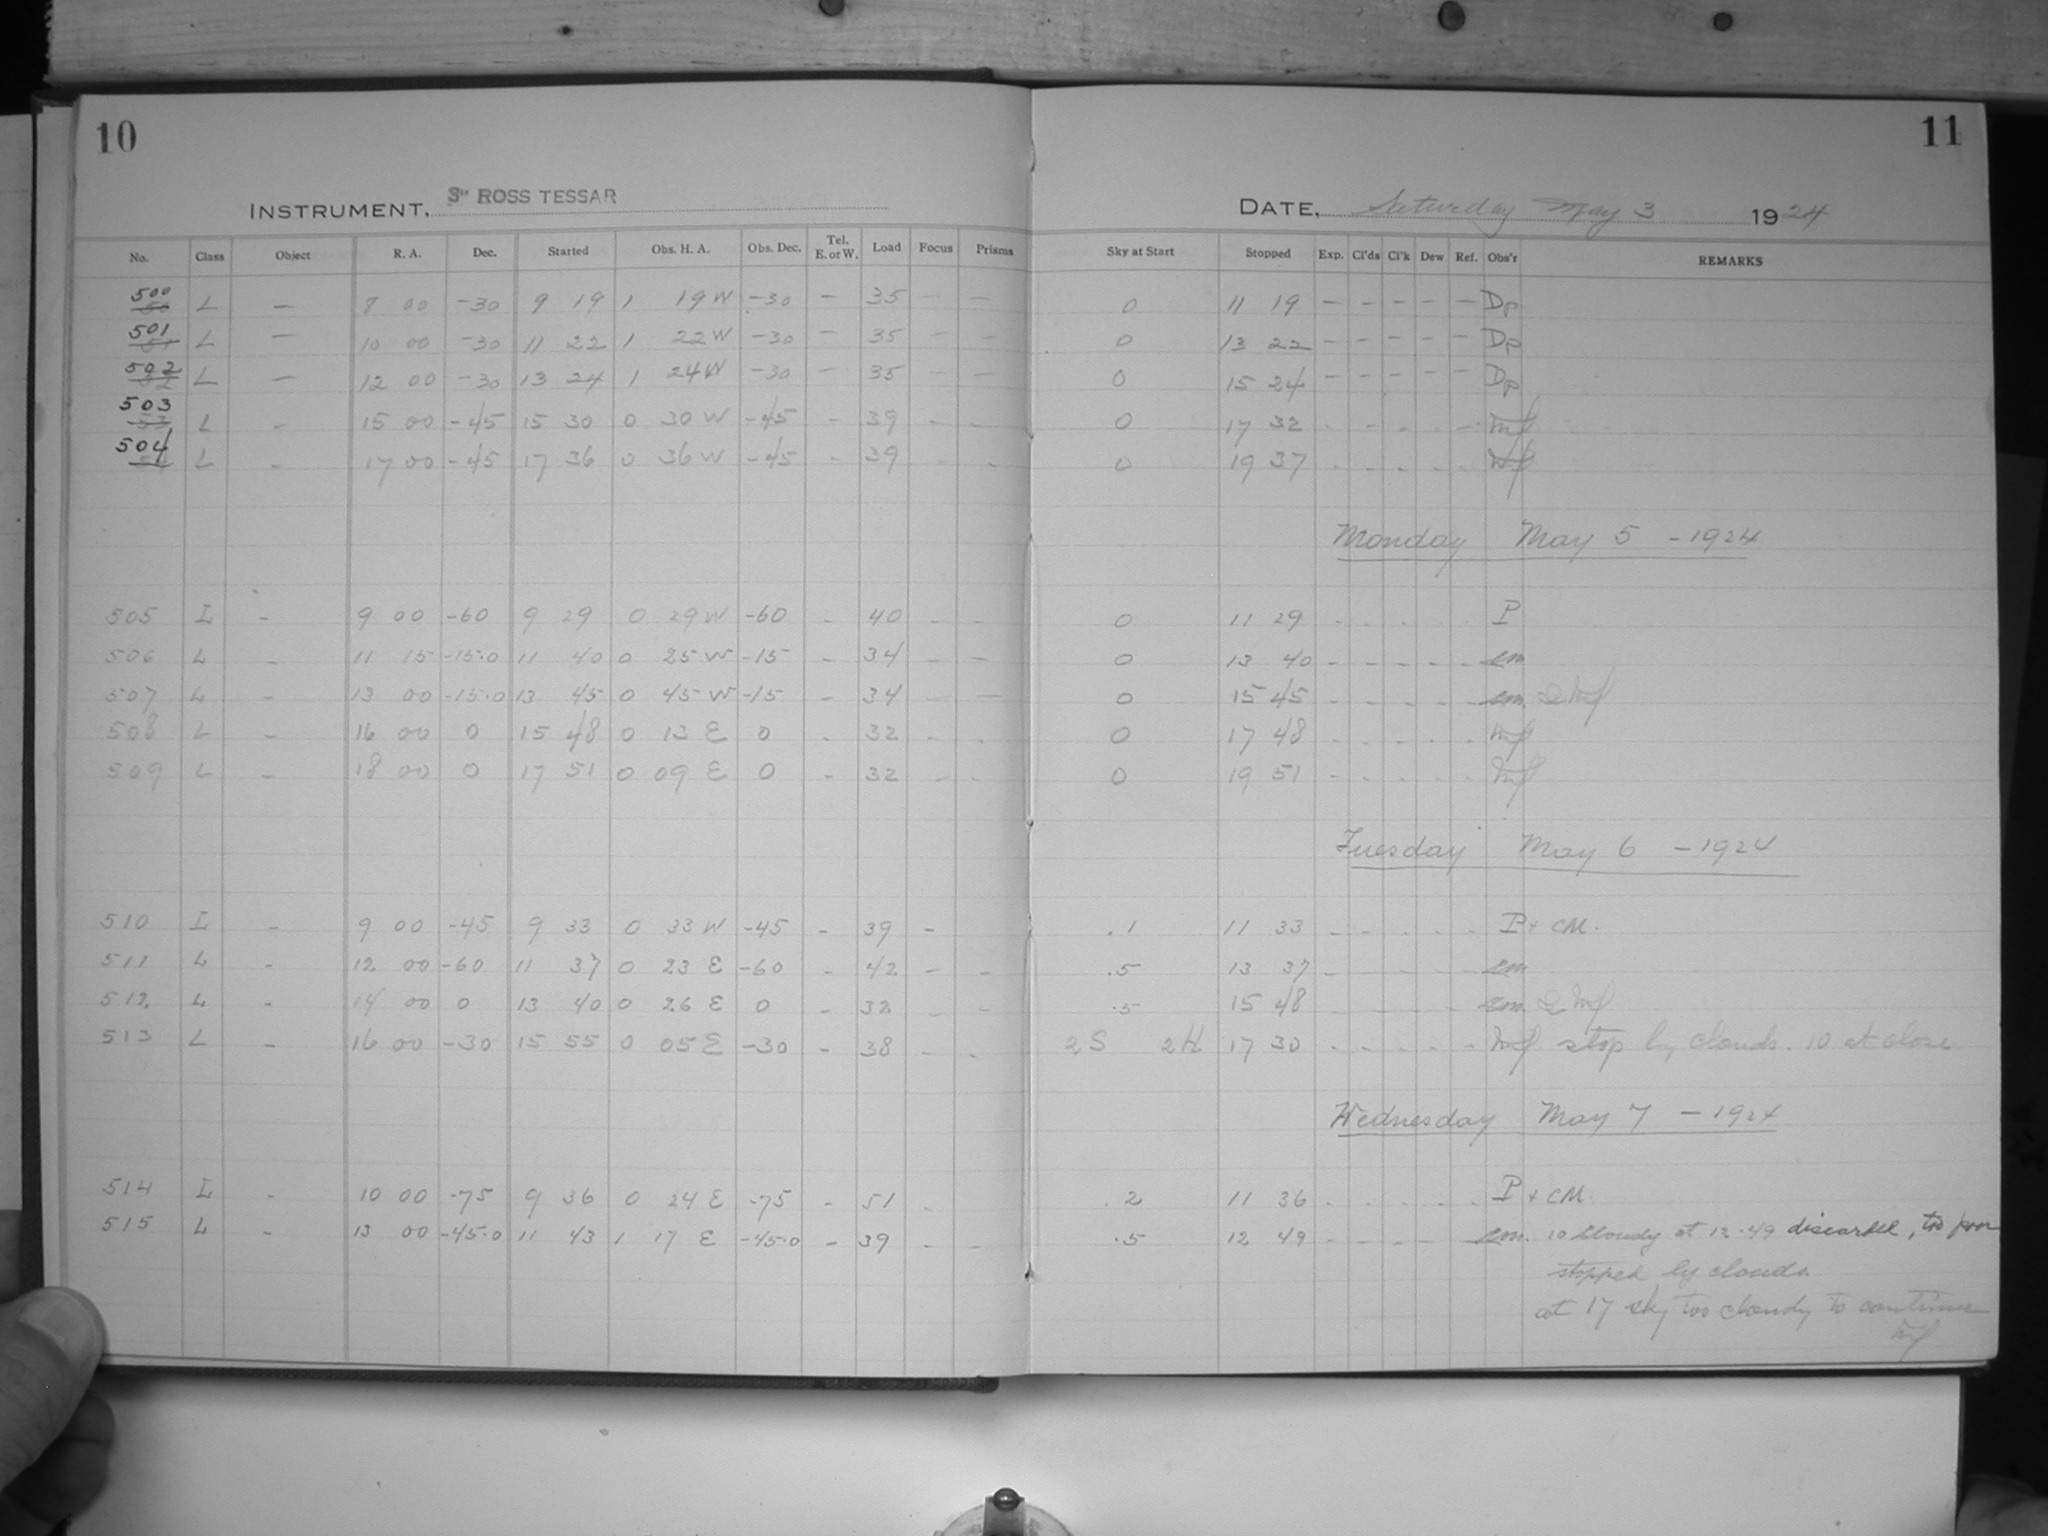 10
11
INSTRUMENT, 3" ROSS TESSAR
DATE, Saturday May 3 1924
No. Class Object R. A. Dec. Started Obs. H. A. Obs. Dec. Tel. E. or W. Load Focus Prisms Sky at Start Stopped Exp. Cl'ds Cl'k Dew Ref. Obs'r REMARKS
500 L — 8 00 -30 9 19 1 19 W -30 — 35 — — 0 11 19 — — — — — Dp
501 L — 10 00 -30 11 22 1 22 W -30 — 35 — — 0 13 22 — — — — — Dp
502 L — 12 00 -30 13 24 1 24 W -30 — 35 — — 0 15 24 — — — — — Dp
503 L - 15 00 -45 15 30 0 30 W -45 - 39 - - 0 17 32 - - - - -
504 L - 17 00 -45 17 36 0 36 W -45 - 39 - - 0 19 37 - - - - -
Monday May 5 - 1924
505 L - 9 00 -60 9 29 0 29 W -60 - 40 - - 0 11 29 - - - - - P
506 L - 11 15 -15.0 11 40 0 25 W -15 - 34 - - 0 13 40 - - - - - em
507 L - 13 00 -15.0 13 45 0 45 W -15 - 34 - - 0 15 45 - - - - - em. &
508 L - 16 00 0 15 48 0 13 E 0 - 32 - - 0 17 48 - - - - -
509 L - 18 00 0 17 51 0 09 E 0 - 32 - - 0 19 51 - - - - -
Tuesday May 6 - 1924
510 L - 9 00 -45 9 33 0 33 W -45 - 39 - .1 11 33 - - - - - P + CM.
511 L - 12 00 -60 11 37 0 23 E -60 - 42 - - .5 13 37 - - - - - em
512 L - 14 00 0 13 40 0 26 E 0 - 32 - - .5 15 48 - - - - - em &
513 L - 16 00 -30 15 55 0 05 E -30 - 38 - - 2 S 2 H 17 30 - - - - - stop by clouds. 10 at close
Wednesday May 7 - 1924
514 L - 10 00 -75 9 36 0 24 E -75 - 51 - .2 11 36 - - - - - P + CM
515 L - 13 00 -45.0 11 43 1 17 E -45.0 - 39 - - .5 12 49 - - - - - em. 10 cloudy at 12.49 discarded, too poor
stopped by clouds
at 17 sky too cloudy to continue